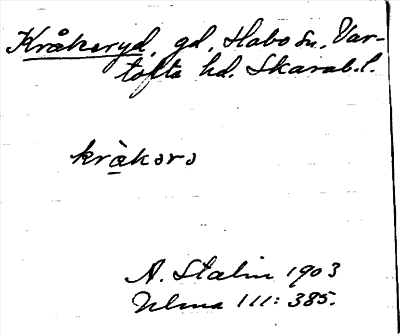 Kråkeryd, gd, Habo sn. Var-
tofta hd. Skarab. l.
kràkərə
A. Stalin 1903
Ulma 111: 385.